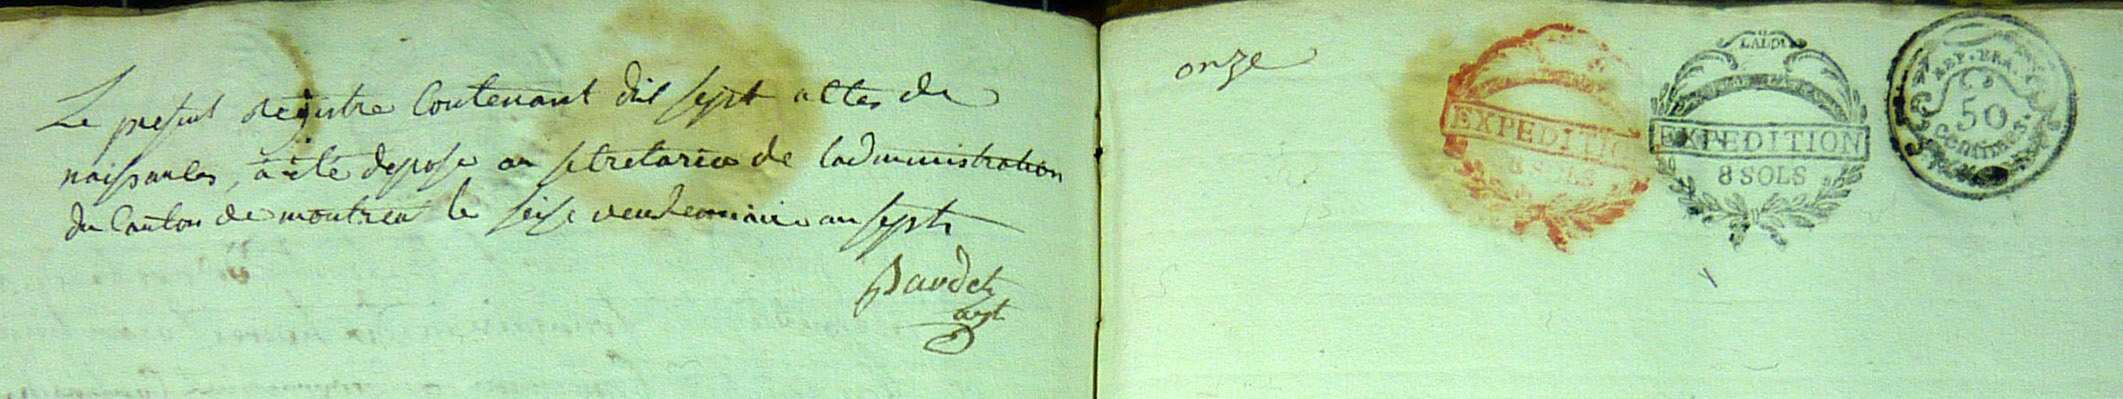 Le present registre Contenant dix sept actes de
naissances, a été deposé au secretariat de Ladministration
du Canton de montreal le seise vendemiaire an sept
Baudet
agt
onze
EXPEDITION
8 SOLS
LA LOI
EXPEDITION
8 SOLS
REP. FRA.
50
Centimes.